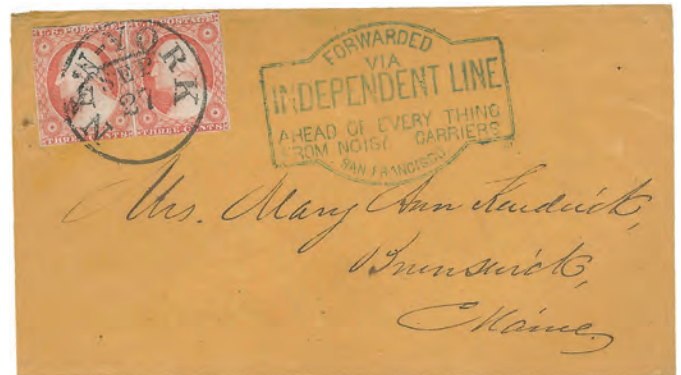 U.S. POSTAGE
THREE CENTS
U.S. POSTAGE
THREE CENTS
NEW-YORK
SEP
27
FORWARDED
VIA
INDEPENDENT LINE
AHEAD OF EVERY THING
FROM NOISY CARRIERS
SAN FRANCISCO
Mrs. Mary Ann Kendrick,
Brunswick,
Maine.